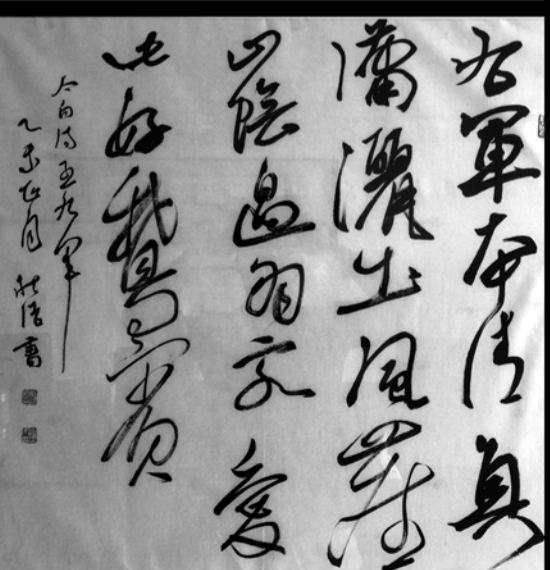 右軍本清真
瀟灑出風塵
山陰過羽客愛
此好鵝賓
李白詩王右軍
乙未正月 書